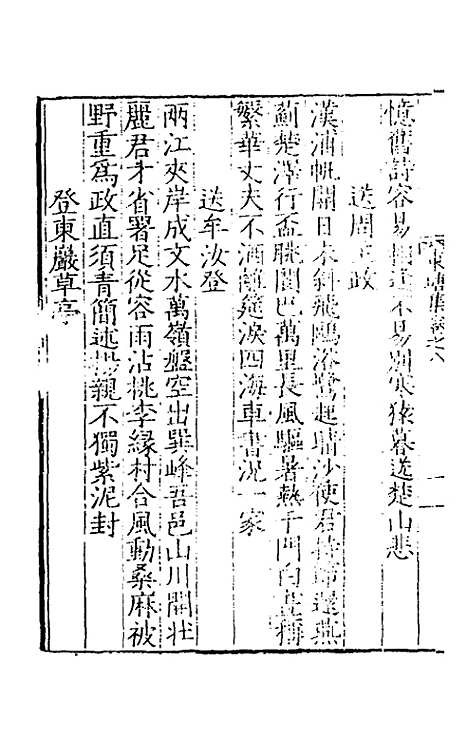 憶舊詩容易相逢不易別寒猿暮送楚山悲
送周主政
漢浦帆開日未斜飛鷗浴鷺起晴沙使君持節還燕
薊楚澤行盃眺閬巴萬里長風驅暑熱千門白晝稱
繁華丈夫不洒離筵淚四海車書況一家
送牟汝登
兩江夾岸成文水萬嶺盤空出巽峰吾邑山川開壯
麗君才省署足從容雨沾桃李緣村合風動桑麻被
野重為政直須青簡述揚親不獨紫泥封
登東巖草亭
東塘集卷之八